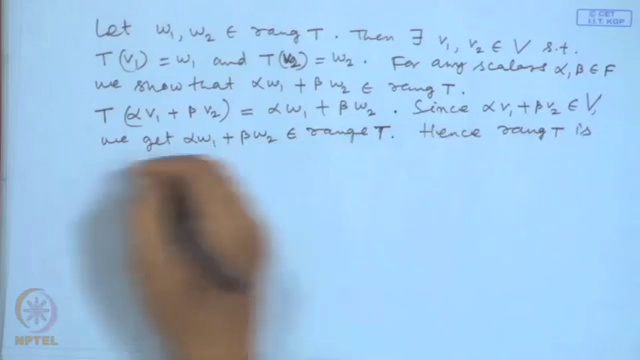 © CET
I.I.T. KGP
Let w₁, w₂ ∈ rang T. Then ∃ v₁, v₂ ∈ V s.t.
T(v₁) = w₁ and T(v₂) = w₂. For any scalars α, β ∈ F
we show that αw₁ + βw₂ ∈ rang T.
T(αv₁ + βv₂) = αw₁ + βw₂. Since αv₁ + βv₂ ∈ V,
we get αw₁ + βw₂ ∈ range T. Hence rang T is
NPTEL